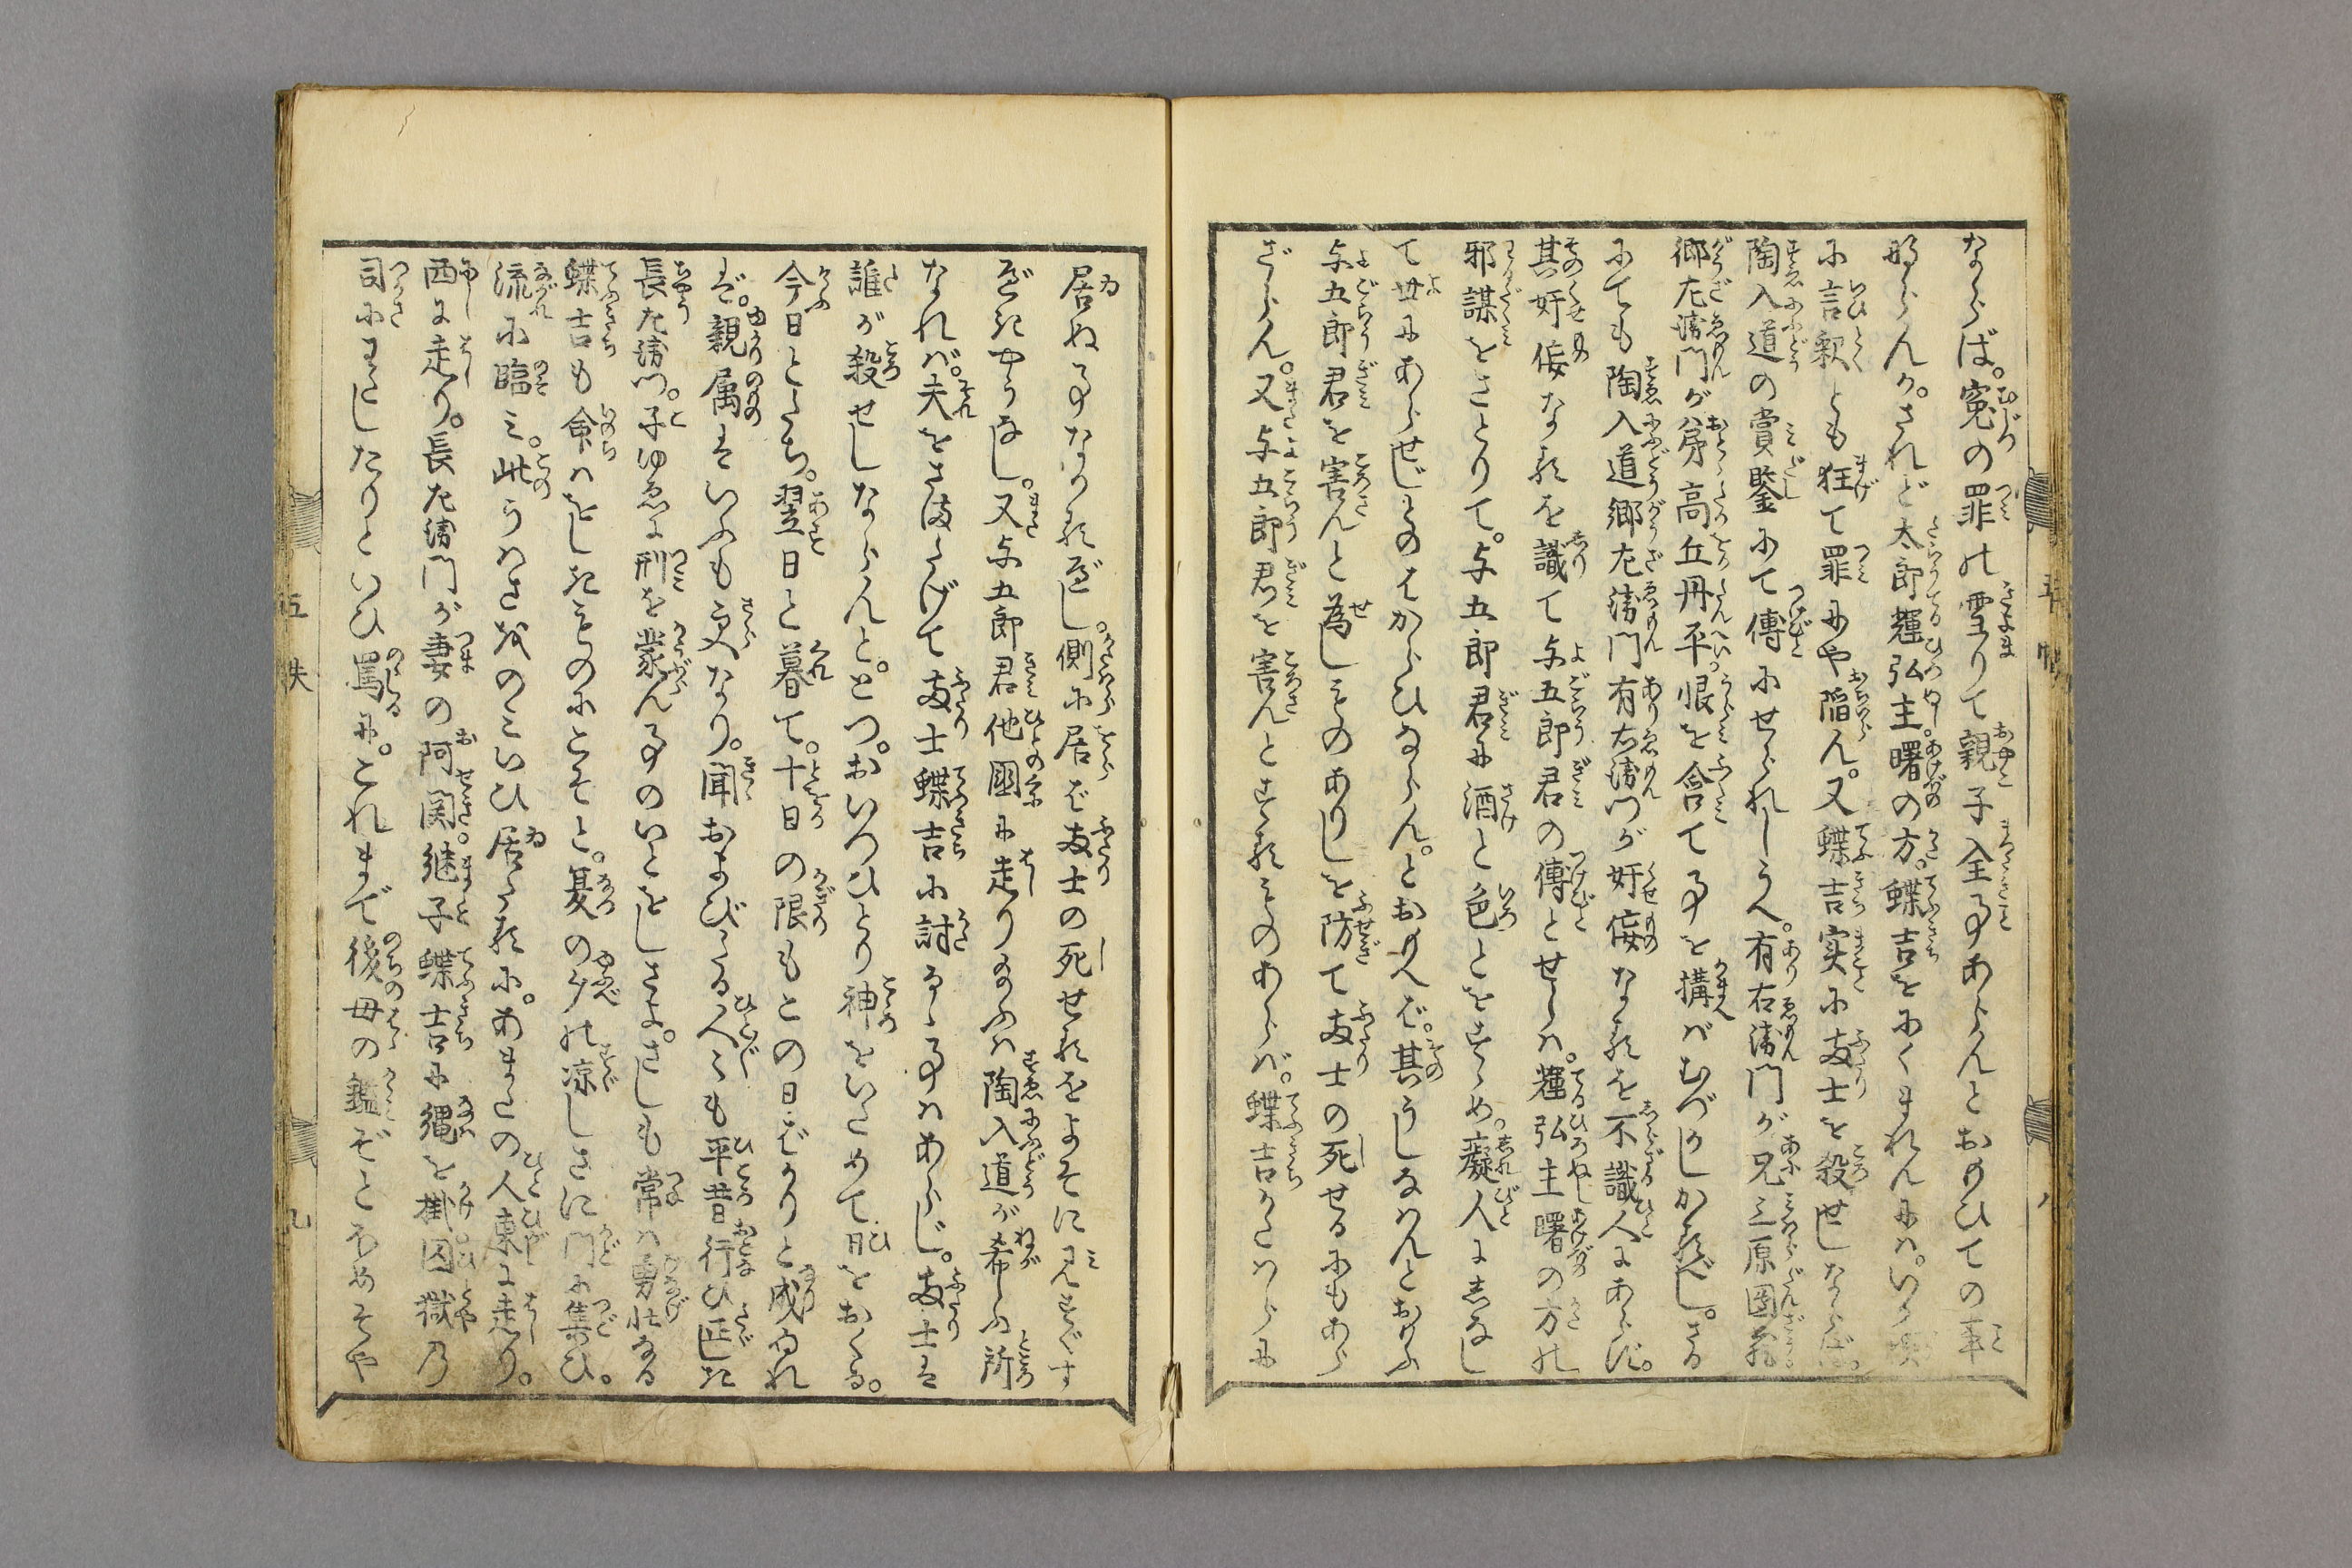 ならば。寃の罪の雪りて親子全事あらんとおもひての事
ならんか。されど太郎輝弘主曙の方。蝶吉をにくまれんには。いか
に言釈とも狂て罪にや陥ん。又蝶吉実に両士を殺せしならば。
陶入道の賞鑒にて傳にせられしうへ。有右衛門が兄三原
郷左衛門が弟高丘丹平。恨を含て事を構ばむづかしかるべし。さる
にても陶入道郷左衛門有右衛門が奸佞なるを不識人にあらず。
其奸佞なるを識て与五郎君の傳とせしは。輝弘主曙の方の
邪謀をさとりて。与五郎君に酒と色とをすゝめ。癡人になし
て世にあらせじとのはからひならん。とおもへど。其うしなはんとおもふ
与五郎君を害んと為しものありしを防て両士の死せるにもあら
ざらん。又与五郎君を害んとするものあらば。蝶吉かたはらに
居ぬ事なるべし。側に居ば両士の死せるをよそに見すぐす
べきやうなし。又与五郎君他國に走り給ふは陶入道が希ふ所
なれば。夫をさまたげて両士蝶吉に討るゝ事はあらじ。両士は
誰が殺せしならんと。とつ。おいつひとり神をいためて日をおくる。
今日とたち。翌日と暮て。十日の限もこの日ばかりと成ぬれ
ど。親属はいふも更なり。聞およびたる人々も平昔行ひ正き
長左衛門。子ゆゑに刑を蒙ん事のいとをしさよ。さしも常は勇壮なる
蝶吉も命はをしきものにこそと。夏の夕の凉しさに門に集ひ。
流に臨み。此うはさをのみいひ居たるに。あまたの人東に走り。
西に走り。長左衛門が妻の阿関。継子蝶吉に縄を掛囚獄の
司にわたしたりといひ罵に。これまで後母の鑑ぞとほめそや
五 帙